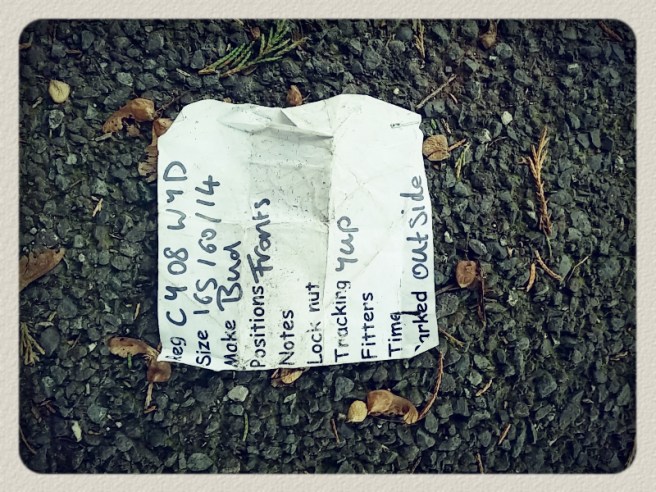 eg CY08 WYD
Size 165/60/14
Make Bud
Positions Fronts
Notes
Lock nut
Tracking Yup
Fitters
Time
arked Outside